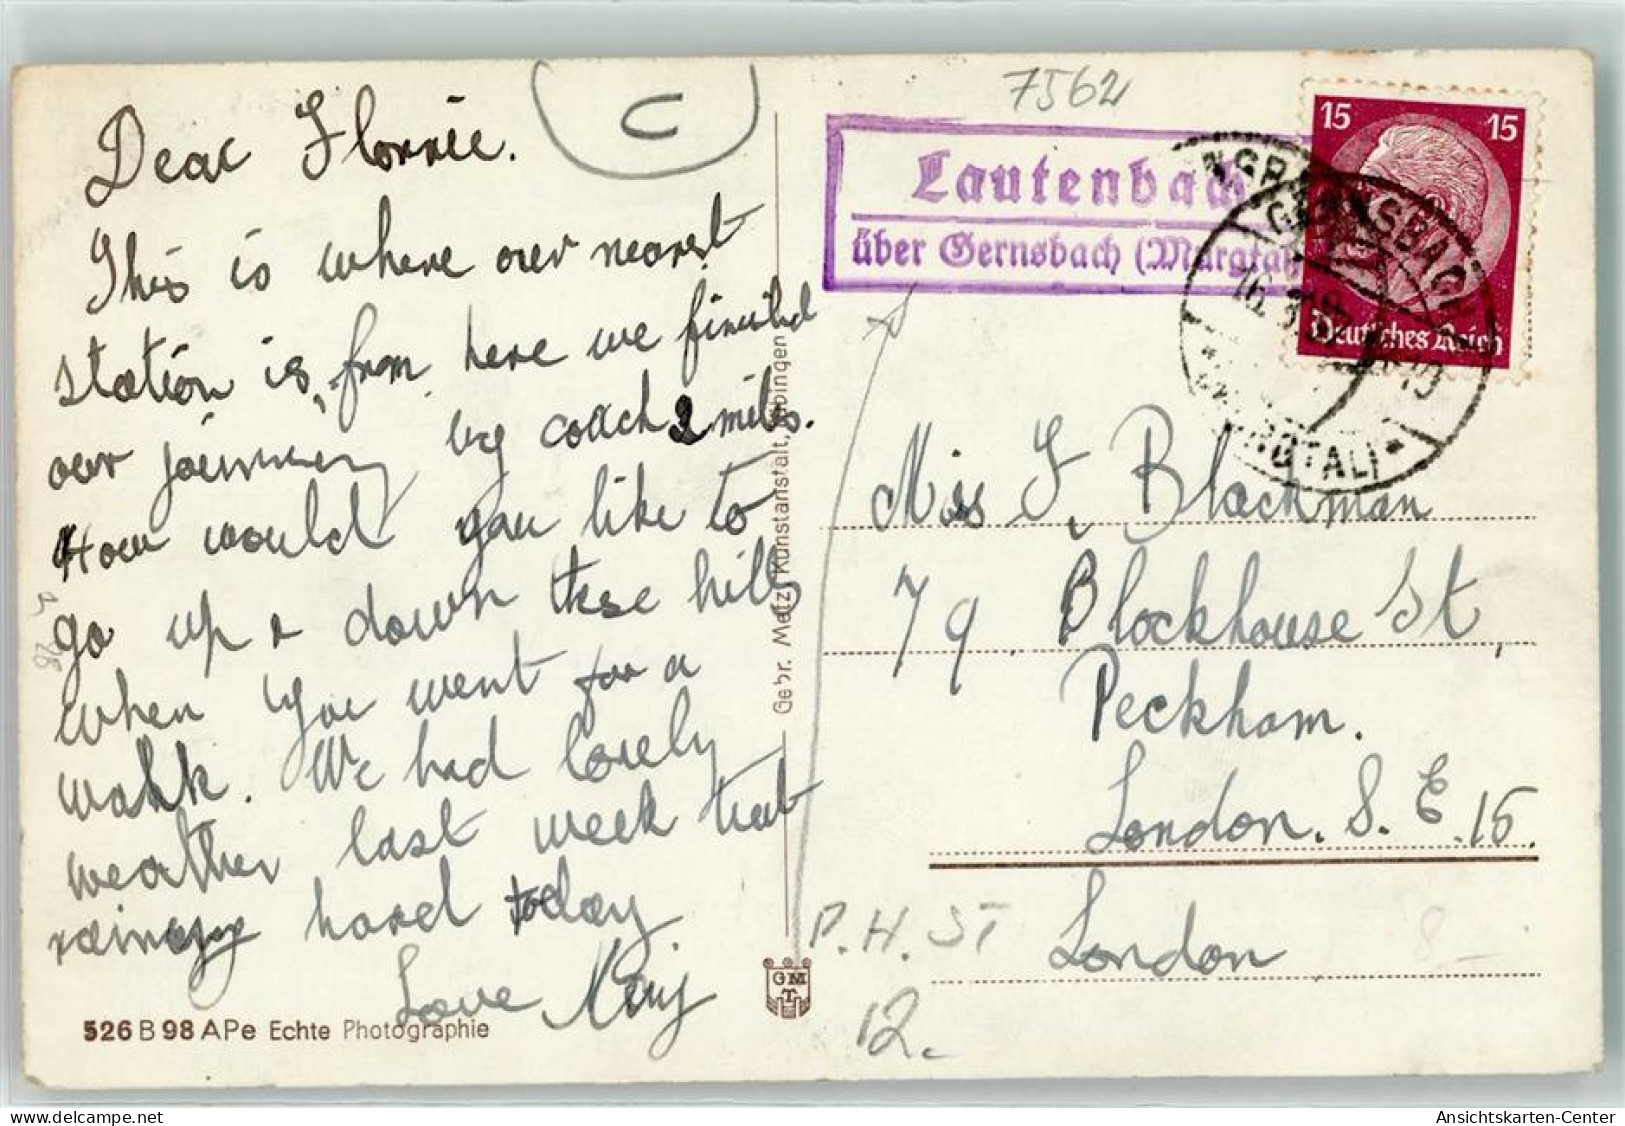 Dear Florrie.
This is where our nearest
station is, from here we finished
our journey by coach 2 miles.
How would you like to
go up & down these hills
when you went for a
walk. We had lovely
weather last week but
raining hard today
Love
526 B 98 APe Echte Photographie
C
Gebr. Metz, Kunstanstalt, Tübingen
GMT
7562
Lautenbach
über Gernsbach (Murgtal)
15 15
Deutsches Reich
GERNSBACH
(MURGTAL)
Miss F. Blackman
79 Blockhouse St,
Peckham.
London. S. E. 15.
London
P. H. ST
12.
delcampe.net
Ansichtskarten-Center